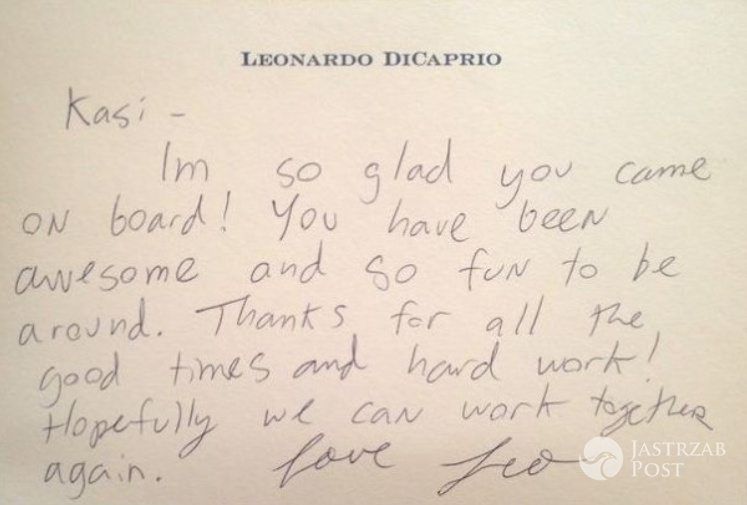 LEONARDO DICAPRIO
Kasi -
Im so glad you came
on board! You have been
awesome and so fun to be
around. Thanks for all the
good times and hard work!
Hopefully we can work together
again. Love Leo
JASTRZAB
POST